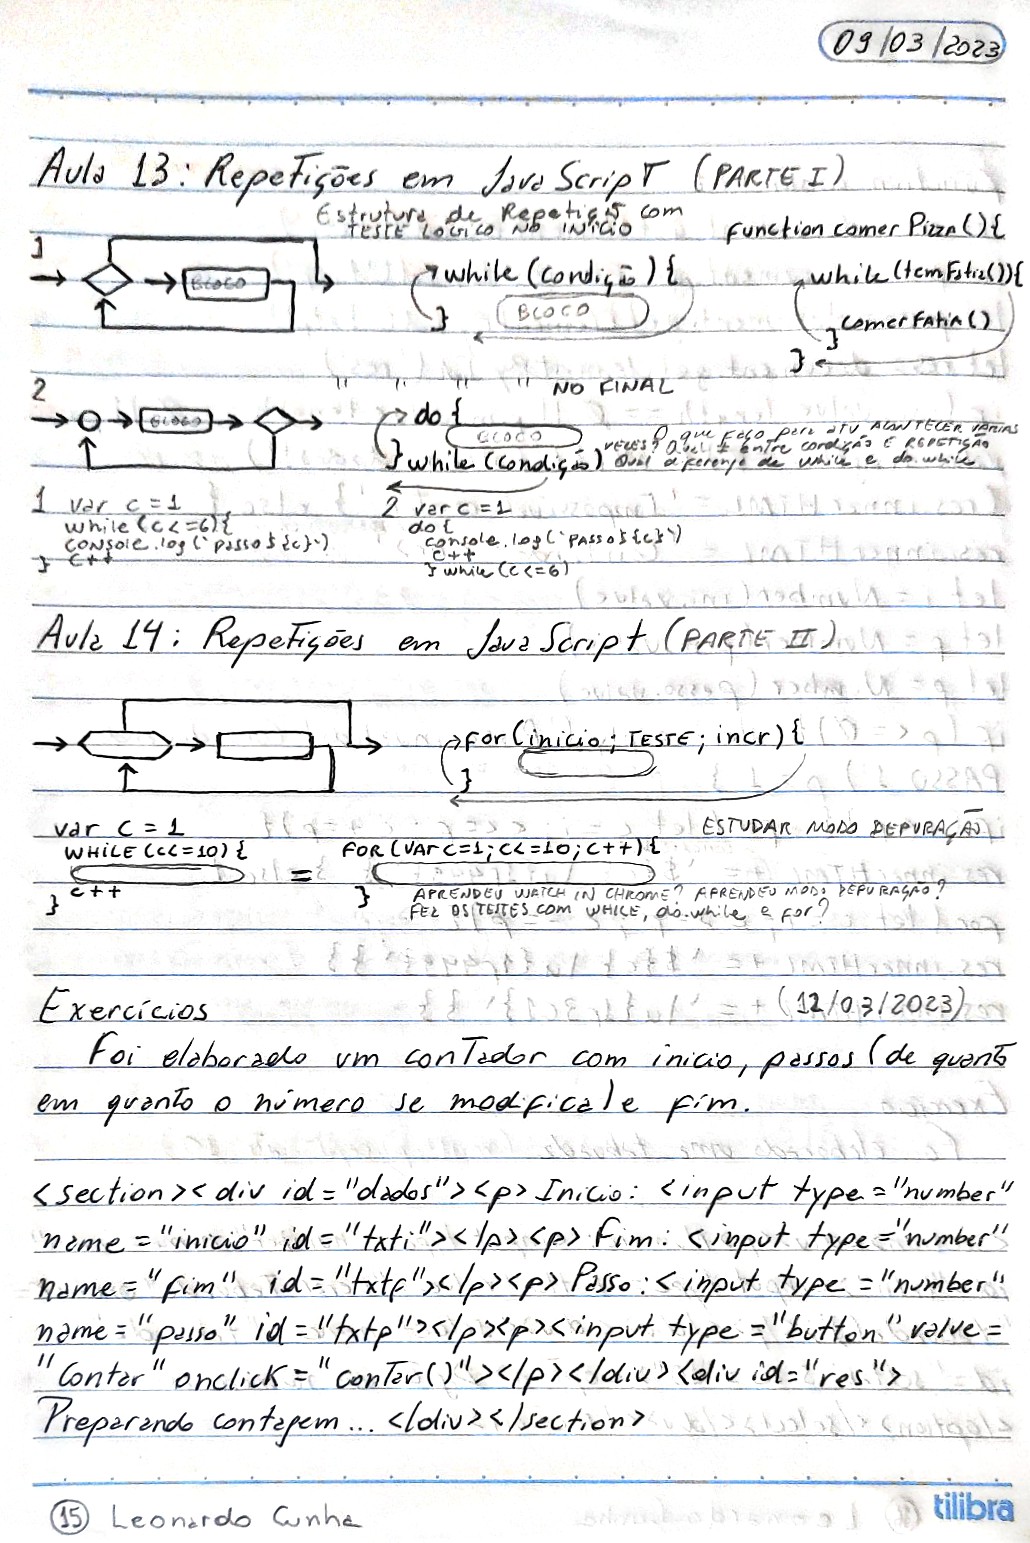 09/03/2023
Aula 13: Repetições em JavaScript (PARTE I)
Estrutura de Repetição com
TESTE LÓGICO NO INÍCIO
function comer Pizza(){
1
BLOCO
while (condição) {
BLOCO
}
while (temFatia()){
comerFatia()
}
}
2
" " " " NO FINAL
BLOCO
do {
BLOCO
} while (condição)
O que faço para ATV ACONTECER VÁRIAS
VEZES? Qual ≠ entre condição E REPETIÇÃO
Qual diferença de while e do.while
1 var c = 1
while (c<=6){
console.log(`passo ${c}`)
c++
}
2 var c = 1
do {
console.log(`PASSO ${c}`)
c++
} while (c<=6)
Aula 14: Repetições em JavaScript (PARTE II)
for (inicio; TESTE; incr) {
}
var c = 1
WHILE (c<=10) {
c++
}
=
ESTUDAR MODO DEPURAÇÃO
FOR (VAR c=1; c<=10; c++) {
}
APRENDEU WATCH IN CHROME? APRENDEU MODO DEPURAÇÃO?
FEZ OS TESTES COM WHILE, do.while e for?
Exercícios
(12/03/2023)
Foi elaborado um contador com inicio, passos (de quanto
em quanto o número se modifica) e fim.
<section><div id="dados"><p> Inicio: <input type="number"
name="inicio" id="txti"></p><p> Fim: <input type="number"
name="fim" id="txtf"></p><p> Passo: <input type="number"
name="passo" id="txtp"></p><p><input type="button" value=
"Contar" onclick="contar()"></p></div><div id="res">
Preparando contagem... </div></section>
15 Leonardo Cunha
tilibra